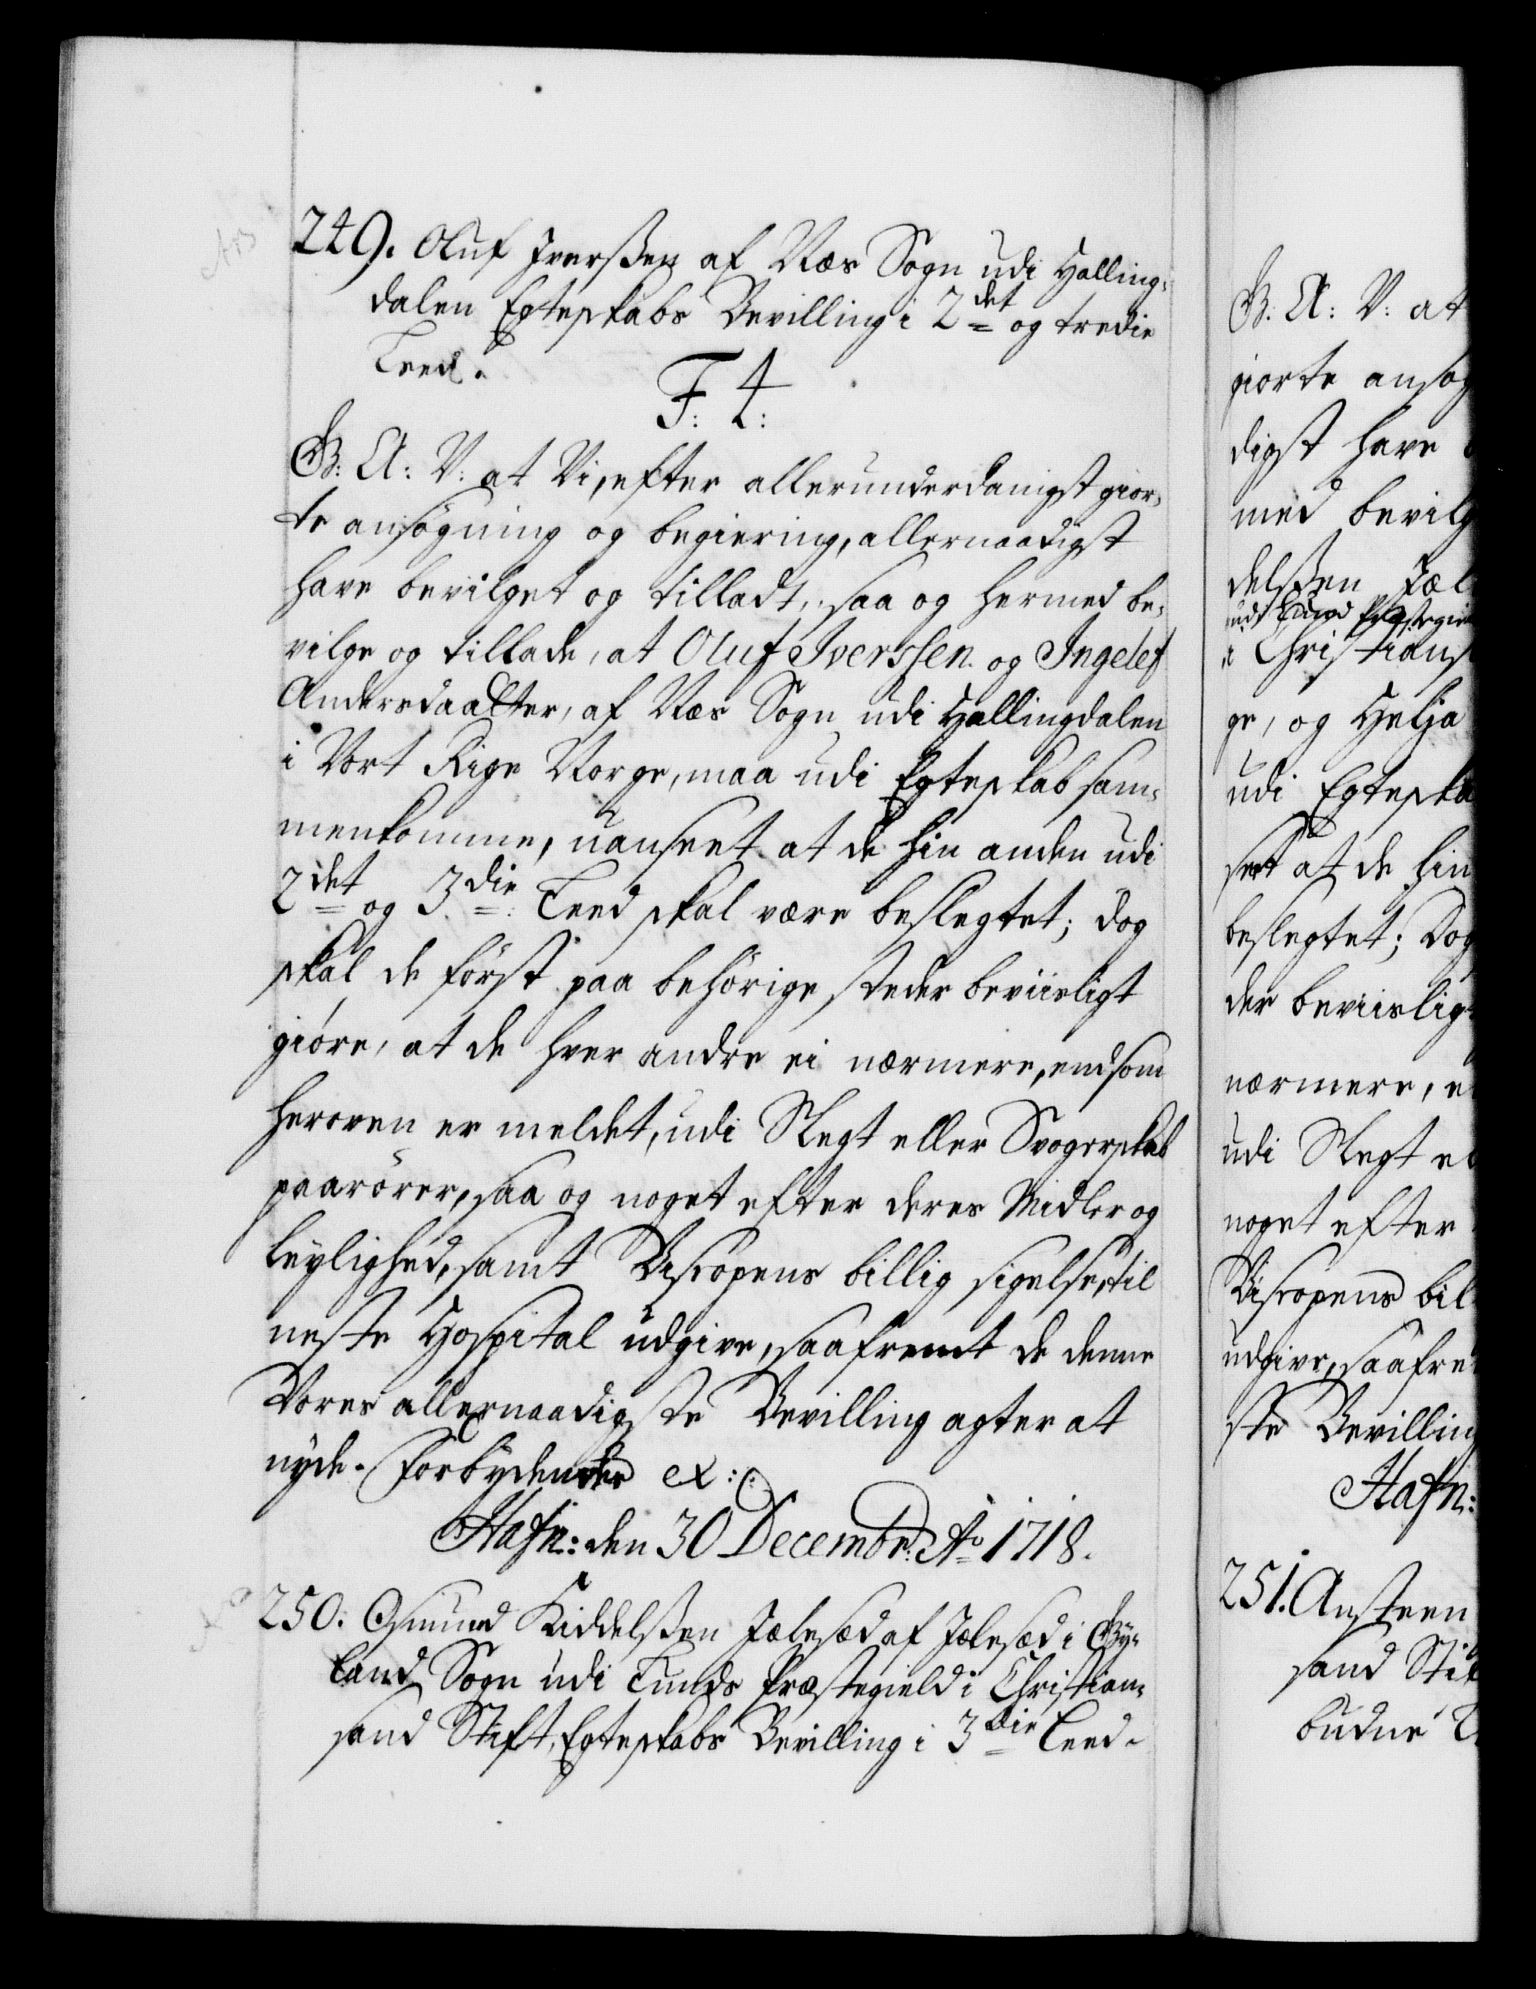 249. Oluf Iverssen af Næs Sogn udi Halling-
dalen Egteskabs Bevilling i 2det og tredie
Leed.
F: 4:
G: A: V: at Vi, efter allerunderdanigst gior-
te ansøgning og begiering, allernaadigst
have bevilget og tilladt, saa og hermed be-
vilge og tillade, at Oluf Iverssen og Ingelef
Andersdaatter, af Næs Sogn udi Hallingdalen
i Vort Rige Norge, maa udi Egteskab sam-
menkomme, uanseet at de hin anden udi
2det og 3die Leed skal være beslegtet; dog
skal de først paa behørige steder beviisligt
giøre, at de hver andre ei nærmere, end som
heroven er meldet, udi Slegt eller Svogerskab
paarører, saa og noget efter deres Midler og
leylighed, samt Biscopens billig sigelse, til
neste Hospital udgive, saafremt de denne
Vores allernaadigste Bevilling agter at
nyde. Forbydendes &:
Hafn: den 30 Decembr: Ao 1718.
250. Osmund Kiddelssen Jælesæd af Jælesæd i Gy-
land Sogn udi Lunds Præstegield i Christian-
sand Stift, Egteskabs Bevilling i 3die Leed.
G: A: V: at
giorte ansøg
digst have
med bevilg
delssen Jæl
udi Lund Præstegie
i Christians
ge, og Helja
udi Egteska
seet at de hin
beslegtet; Dog
der beviislig
nærmere, e
udi Slegt el
noget efter
Biscopens bil
udgive, saafre
ste Bevilling
Hafn:
251. Ansteen
sand Stif
budne